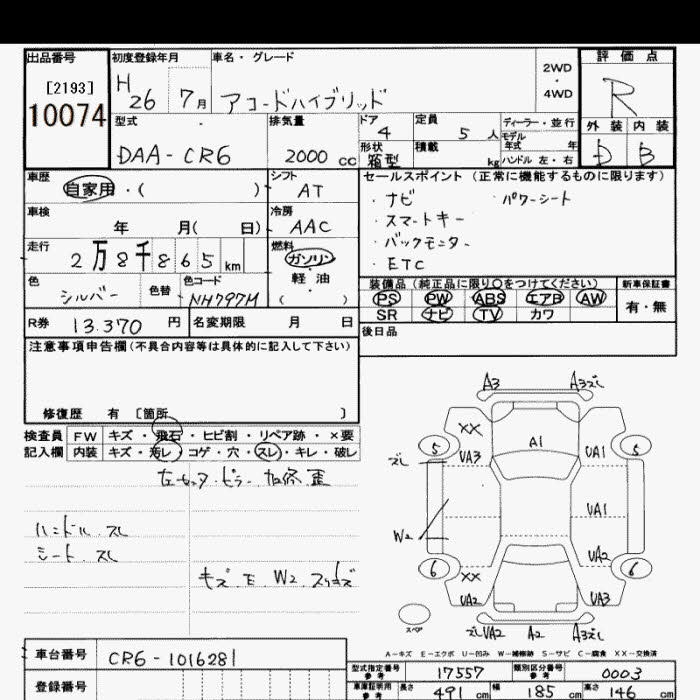 出品番号 初度登録年月 車名・グレード 2WD ・ 4WD 評価点
[2193]
10074
H26 7月 アコードハイブリッド R
型式 排気量 ドア 4 定員 5人 ディーラー・並行 外装 内装
DAA-CR6 2000cc 形状 箱型 積載 kg モデル年式 年 ハンドル 左・右 D B
車歴 自家用・( ) シフト AT
セールスポイント(正常に機能するものに限ります)
・ナビ ・パワーシート
・スマートキー
・バックモニター
・ETC
車検 年 月( 日) 冷房 AAC
走行 2万8千865km 燃料 ガソリン
軽油
( )
色 シルバー 色替 色コード NH797M
装備品(純正品に限り○をつけてください) 新車保証書
PS PW ABS エアB AW 有・無
SR ナビ TV カワ
R券 13.370円 名変期限 月 日
後日品
注意事項申告欄(不具合内容等は具体的に記入して下さい)
修復歴 有〔箇所 〕
検査員 FW キズ・飛石・ヒビ割・リペア跡・×要
記入欄 内装 キズ・汚レ・コゲ・穴・スレ・キレ・破レ
ハンドル.スレ
シート.スレ
キズ E W2
A3 A3ズレ
XX A1
5 5
ズレ UA3 UA1
UA1
W2
UA2
6 6
XX
UA2 UA3
ズレUA2 A2 A3ズレ
スペア
A-キズ E-エクボ U-凹み W-補修跡 S-サビ C-腐食 XX-交換済
車台番号 CR6-1016281
型式指定番号 参考 17557 類別区分番号 参考 0003
登録番号
車庫証明用 参考 長さ 491cm 幅 185cm 高さ 146cm